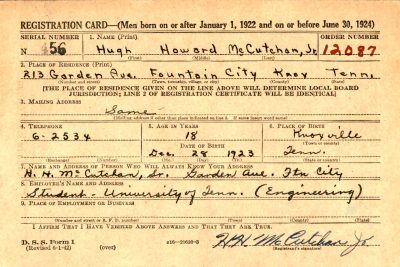 REGISTRATION CARD—(Men born on or after January 1, 1922 and on or before June 30, 1924)
SERIAL NUMBER 1. NAME (Print) ORDER NUMBER
N 456 Hugh Howard McCutchan, Jr. 12087
(First) (Middle) (Last)
2. PLACE OF RESIDENCE (Print)
213 Garden Ave. Fountain City Knox Tenn.
(Number and street) (Town, township, village, or city) (County) (State)
[THE PLACE OF RESIDENCE GIVEN ON THE LINE ABOVE WILL DETERMINE LOCAL BOARD
JURISDICTION; LINE 2 OF REGISTRATION CERTIFICATE WILL BE IDENTICAL]
3. MAILING ADDRESS
Same
[Mailing address if other than place indicated on line 2. If same insert word same]
4. TELEPHONE 5. AGE IN YEARS 6. PLACE OF BIRTH
6-2534 18 Knoxville
DATE OF BIRTH (Town or county)
Dec. 28 1923 Tenn.
(Exchange) (Number) (Mo.) (Day) (Yr.) (State or country)
7. NAME AND ADDRESS OF PERSON WHO WILL ALWAYS KNOW YOUR ADDRESS
H. H. McCutchan, Sr. Garden Ave. Ftn City
8. EMPLOYER'S NAME AND ADDRESS
Student - University of Tenn. (Engineering)
9. PLACE OF EMPLOYMENT OR BUSINESS
(Number and street or R. F. D. number) (Town) (County) (State)
I AFFIRM THAT I HAVE VERIFIED ABOVE ANSWERS AND THAT THEY ARE TRUE.
D. S. S. Form 1 H H McCutchan Jr.
(Revised 6-1-42) (over) (Registrant's signature)